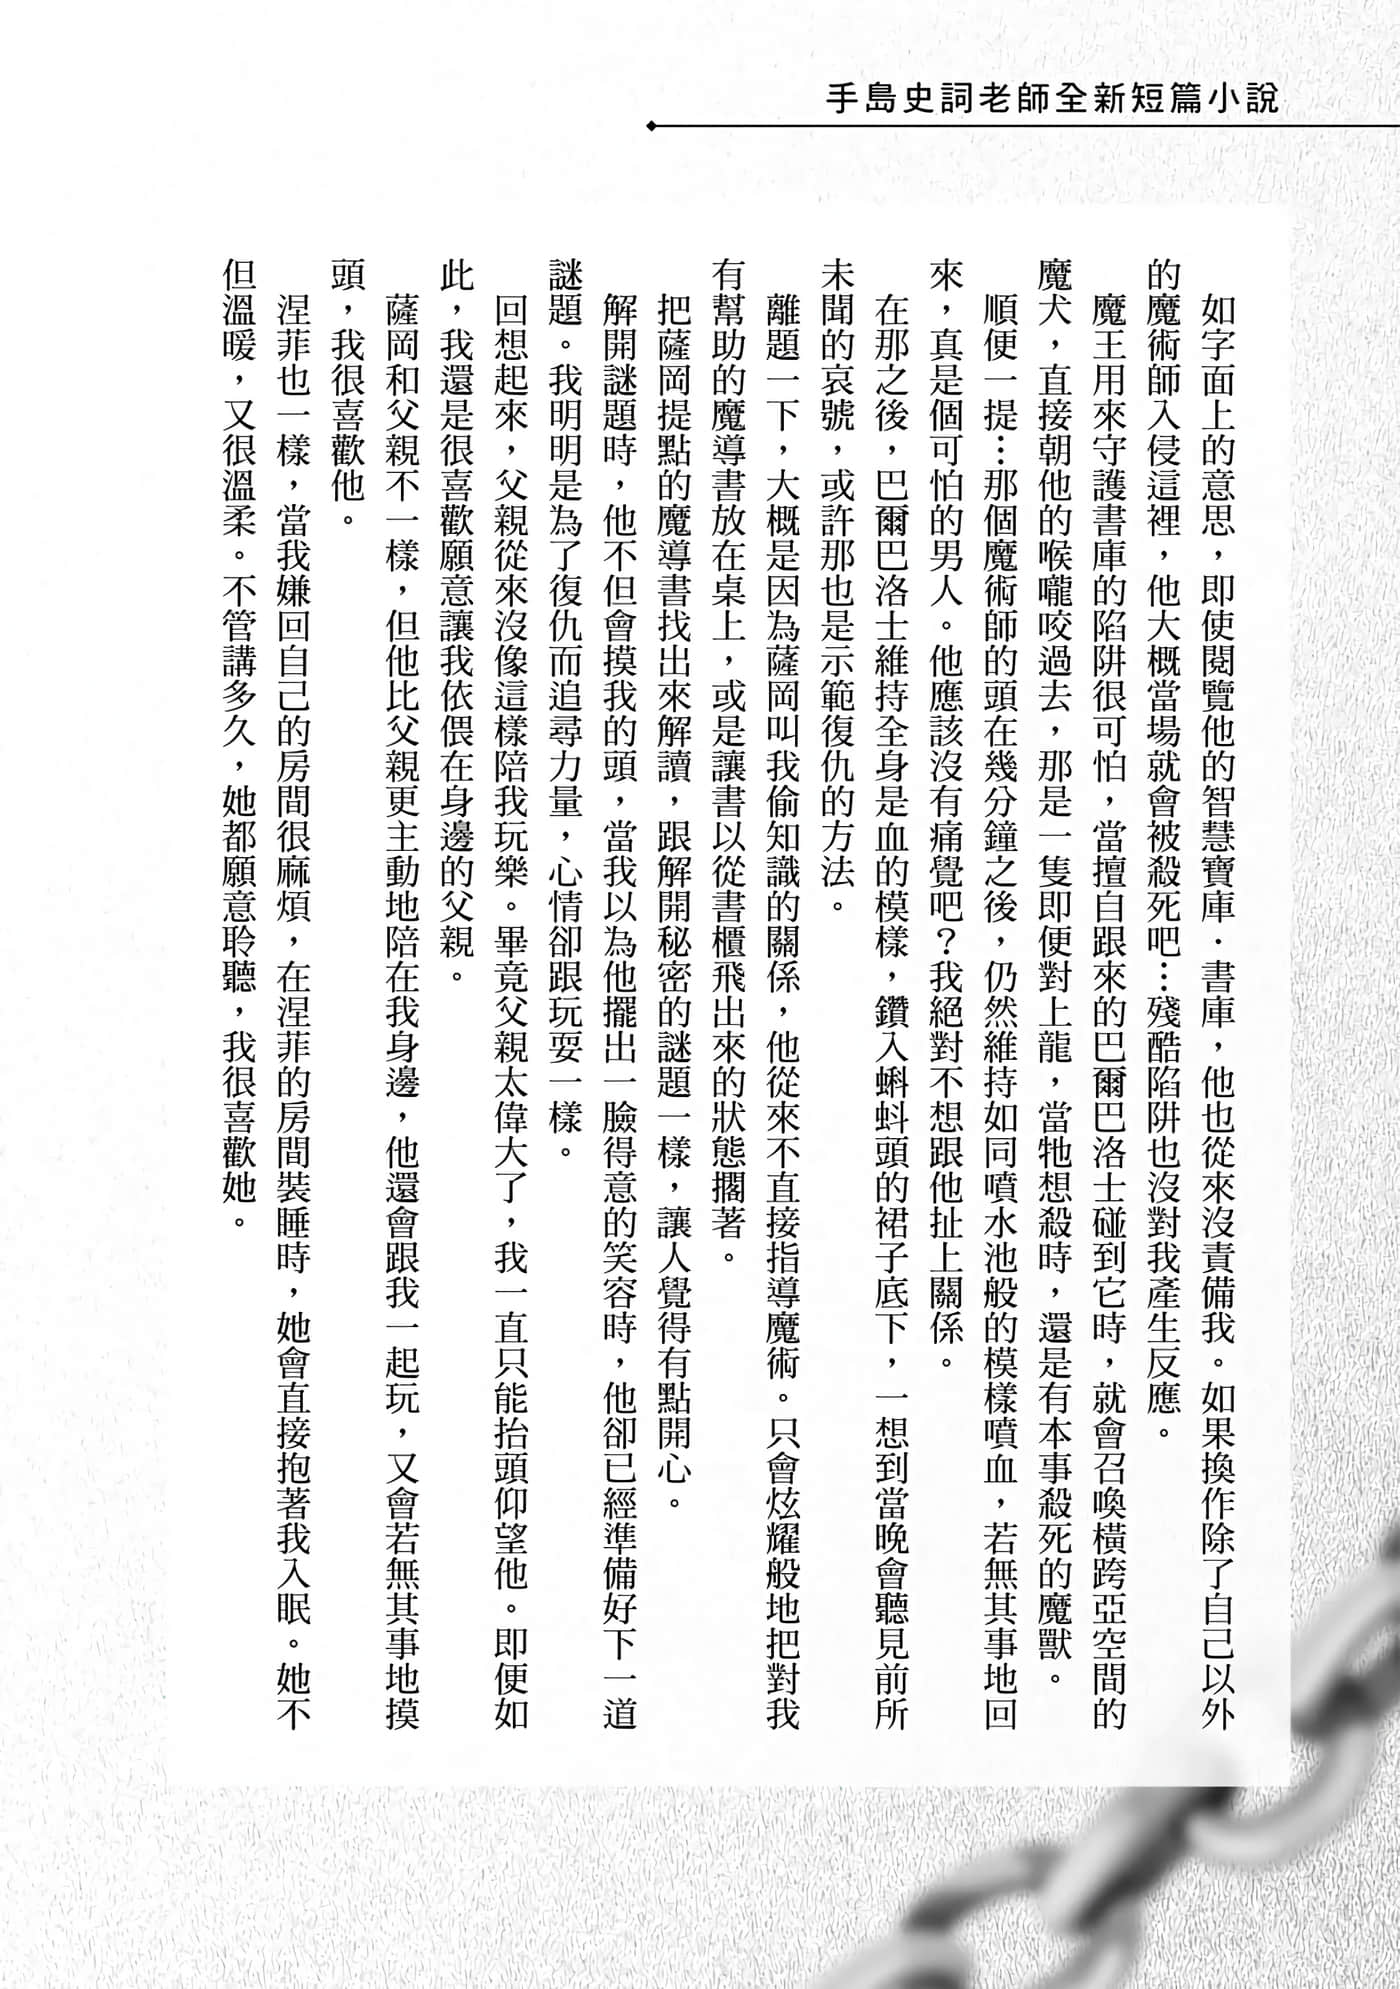 手島史詞老師全新短篇小說
如字面上的意思，即使閱覽他的智慧寶庫．書庫，他也從來沒責備我。如果換作除了自己以外
的魔術師入侵這裡，他大概當場就會被殺死吧…殘酷陷阱也沒對我產生反應。
魔王用來守護書庫的陷阱很可怕，當擅自跟來的巴爾巴洛士碰到它時，就會召喚橫跨亞空間的
魔犬，直接朝他的喉嚨咬過去，那是一隻即便對上龍，當牠想殺時，還是有本事殺死的魔獸。
順便一提…那個魔術師的頭在幾分鐘之後，仍然維持如同噴水池般的模樣噴血，若無其事地回
來，真是個可怕的男人。他應該沒有痛覺吧？我絕對不想跟他扯上關係。
在那之後，巴爾巴洛士維持全身是血的模樣，鑽入蝌蚪頭的裙子底下，一想到當晚會聽見前所
未聞的哀號，或許那也是示範復仇的方法。
離題一下，大概是因為薩岡叫我偷知識的關係，他從來不直接指導魔術。只會炫耀般地把對我
有幫助的魔導書放在桌上，或是讓書以從書櫃飛出來的狀態擱著。
把薩岡提點的魔導書找出來解讀，跟解開秘密的謎題一樣，讓人覺得有點開心。
解開謎題時，他不但會摸我的頭，當我以為他擺出一臉得意的笑容時，他卻已經準備好下一道
謎題。我明明是為了復仇而追尋力量，心情卻跟玩耍一樣。
回想起來，父親從來沒像這樣陪我玩樂。畢竟父親太偉大了，我一直只能抬頭仰望他。即便如
此，我還是很喜歡願意讓我依偎在身邊的父親。
薩岡和父親不一樣，但他比父親更主動地陪在我身邊，他還會跟我一起玩，又會若無其事地摸
頭，我很喜歡他。
涅菲也一樣，當我嫌回自己的房間很麻煩，在涅菲的房間裝睡時，她會直接抱著我入眠。她不
但溫暖，又很溫柔。不管講多久，她都願意聆聽，我很喜歡她。